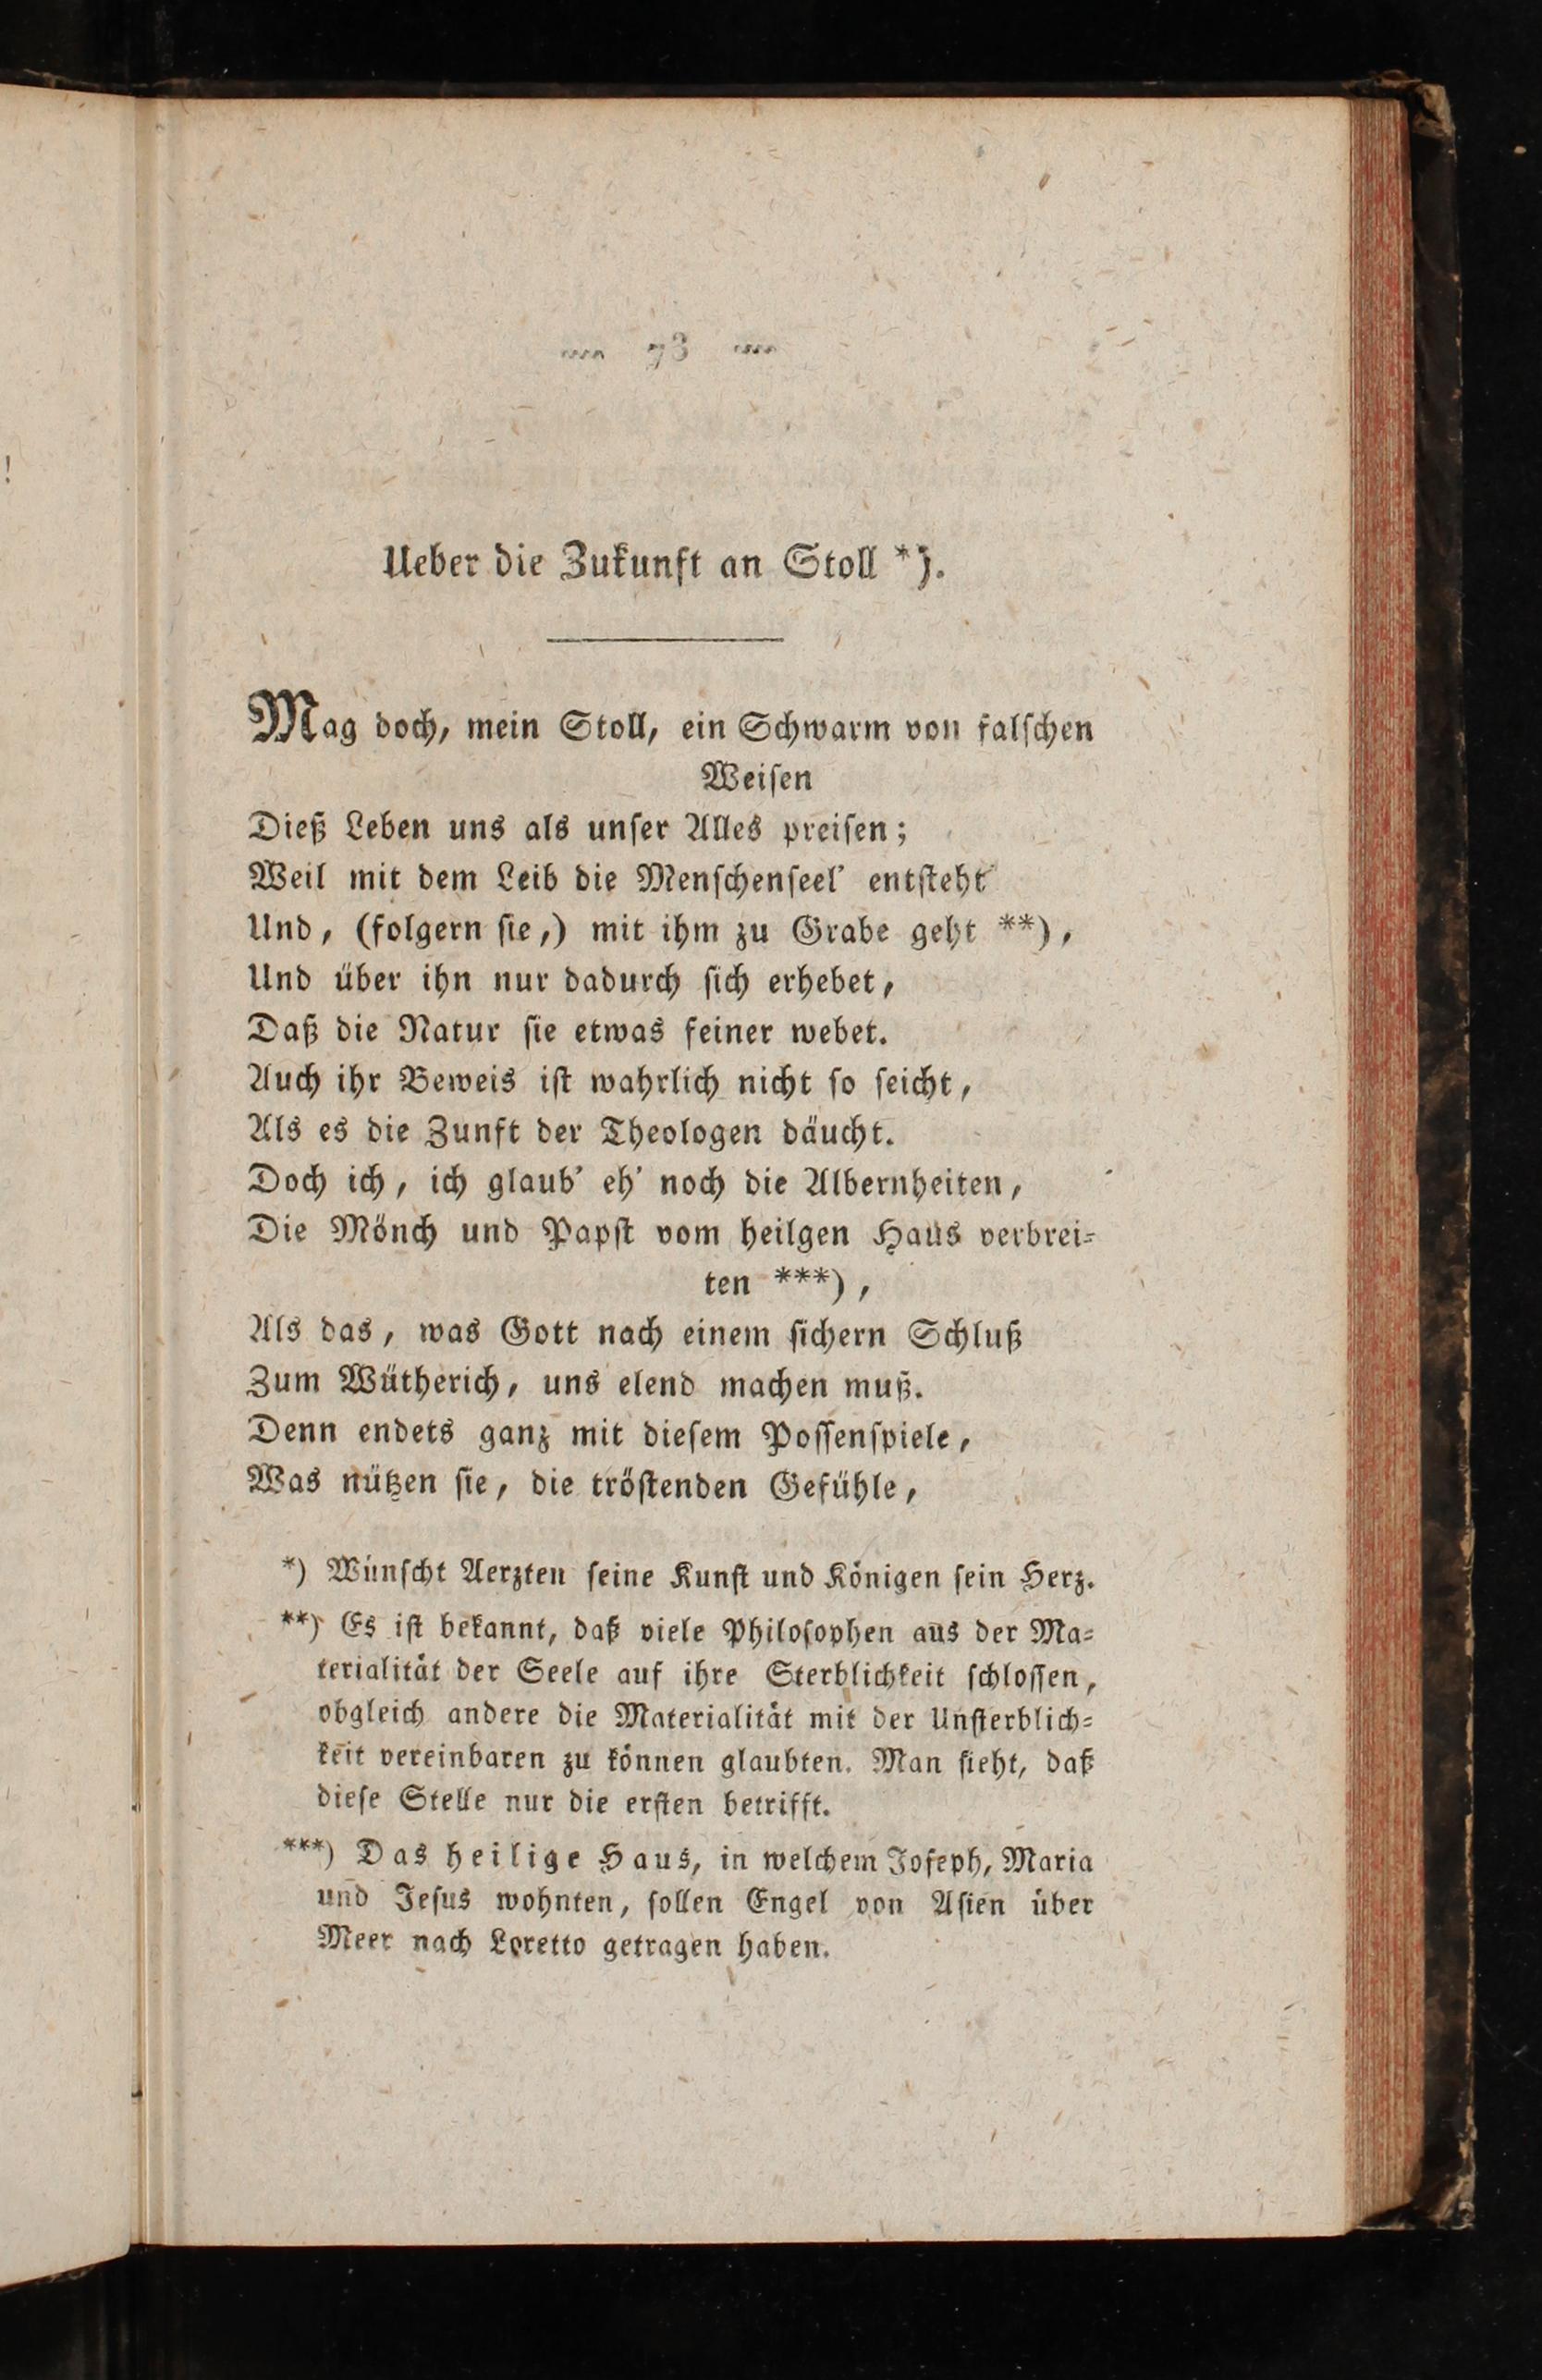 73
Ueber die Zukunft an Stoll *).
Mag doch, mein Stoll, ein Schwarm von falschen
Weisen
Dieß Leben uns als unser Alles preisen;
Weil mit dem Leib die Menschenseel' entsteht
Und, (folgern sie,) mit ihm zu Grabe geht **),
Und über ihn nur dadurch sich erhebet,
Daß die Natur sie etwas feiner webet.
Auch ihr Beweis ist wahrlich nicht so seicht,
Als es die Zunft der Theologen däucht.
Doch ich, ich glaub' eh' noch die Albernheiten,
Die Mönch und Papst vom heilgen Haus verbrei-
ten ***),
Als das, was Gott nach einem sichern Schluß
Zum Wütherich, uns elend machen muß.
Denn endets ganz mit diesem Possenspiele,
Was nützen sie, die tröstenden Gefühle,
*) Wünscht Aerzten seine Kunst und Königen sein Herz.
**) Es ist bekannt, daß viele Philosophen aus der Ma-
terialität der Seele auf ihre Sterblichkeit schlossen,
obgleich andere die Materialität mit der Unsterblich-
keit vereinbaren zu können glaubten. Man sieht, daß
diese Stelle nur die ersten betrifft.
***) Das heilige Haus, in welchem Joseph, Maria
und Jesus wohnten, sollen Engel von Asien über
Meer nach Loretto getragen haben.